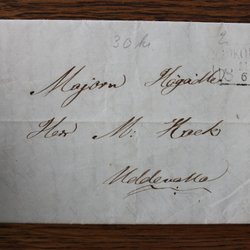 30 kr
2
Majorn Högädle
Herr M: Hack
Uddevalla